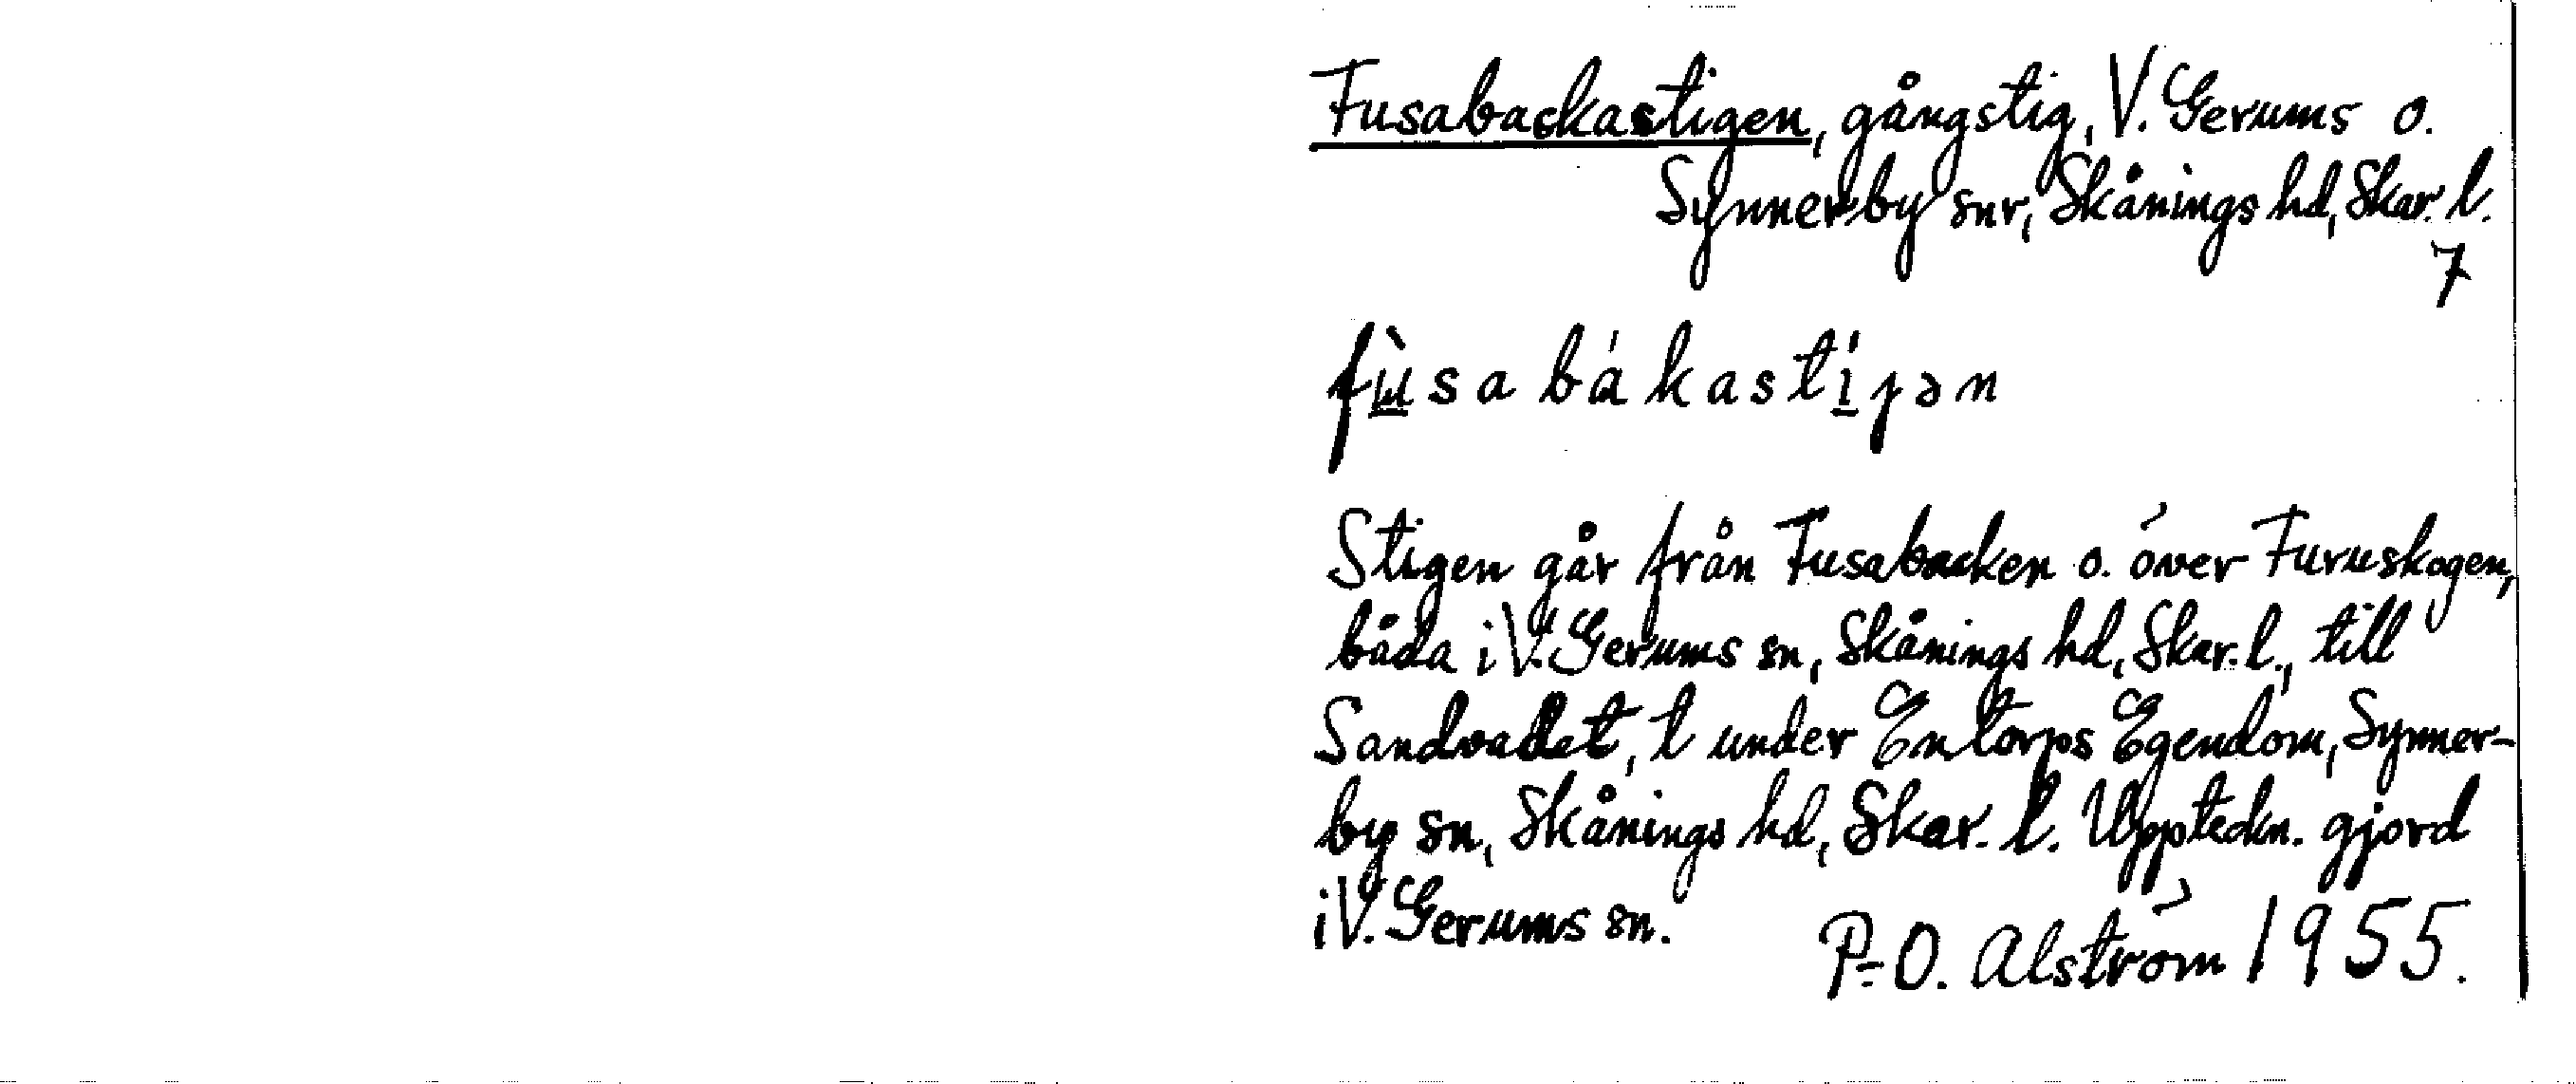 Fusabackastigen, gångstig, V. Gerums o.
Synnerby snr, Skånings hd, Skar. l.
7
fùsabákastíȷən
Stigen går från Fusabacken o. över Furuskogen,
båda i V. Gerums sn, Skånings hd, Skar. l., till
Sandvadet, t under Entorps Egendom, Synner-
by sn, Skånings hd, Skar. l. Uppteckn. gjord
i V. Gerums sn.
P.-O. Alström 1955.